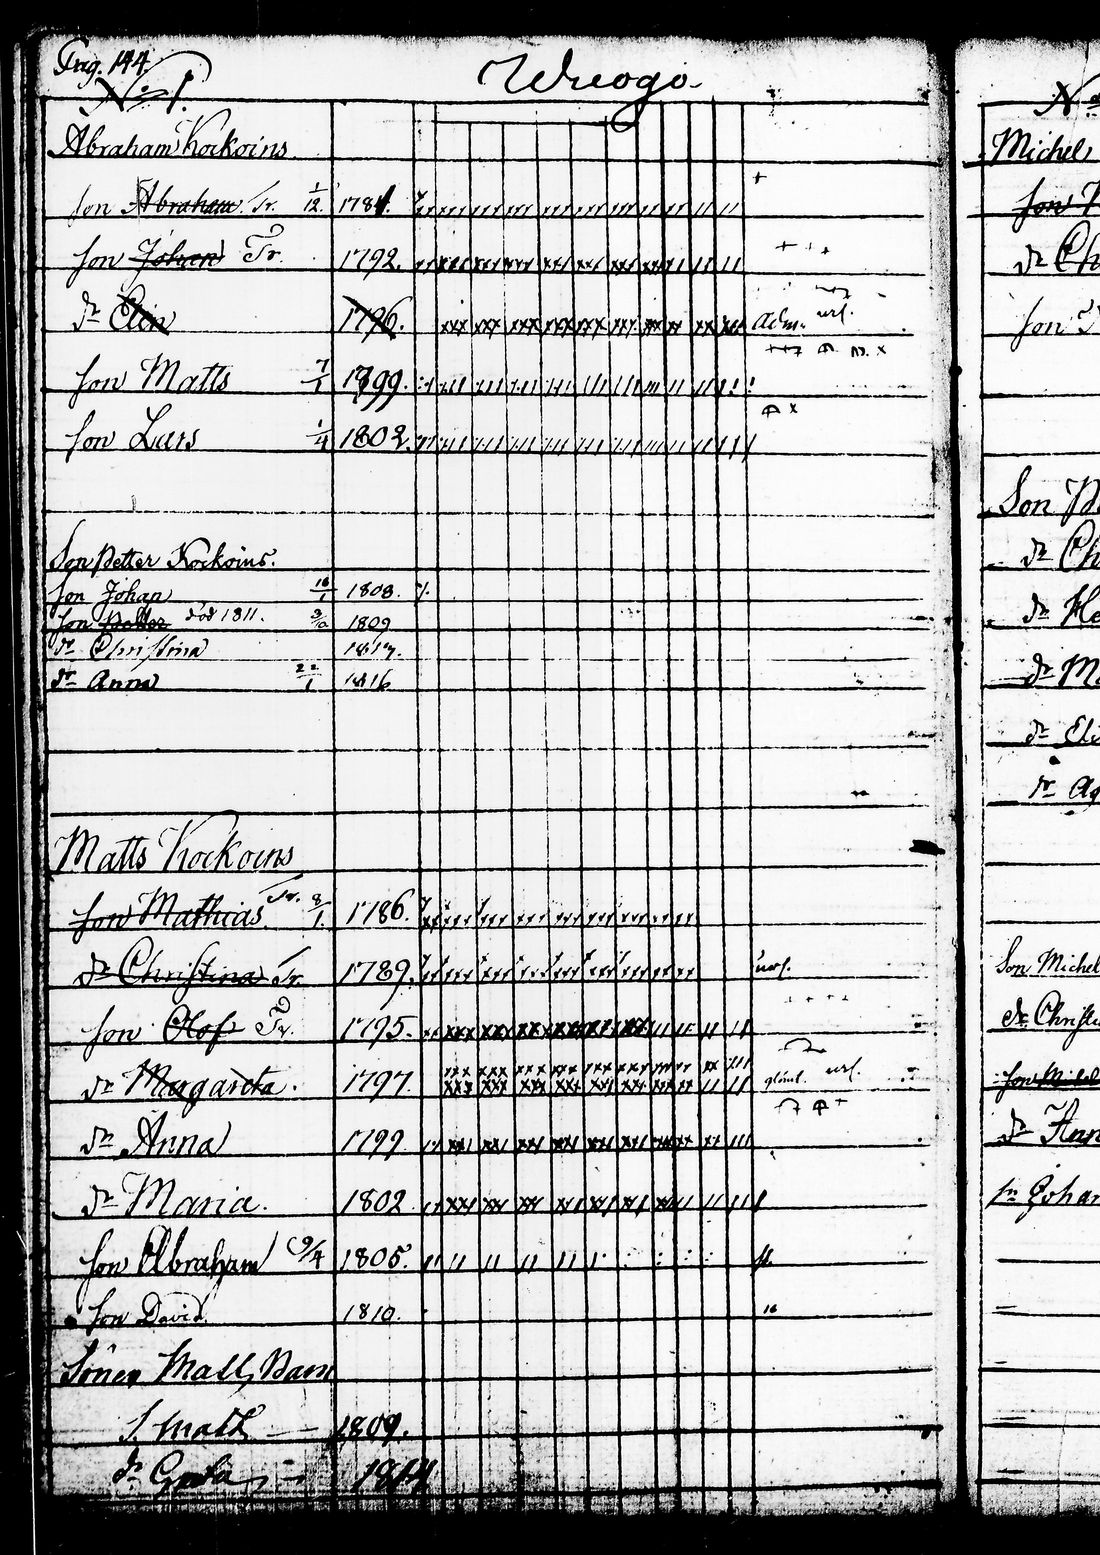 Pag. 144.
Wreogo
No 1.
Abraham Kockoins
Son Abraham Tr. 1/12. 1784.
Son Johan Tr. 1792.
Dr Elin 1796. Adm.
Son Matts 7/1 1799.
Son Lars 1/4 1802.
Son Petter Kockoins.
Son Johan 16/1 1808.
Son Petter död 1811. 3/10 1809
Dr Christina
Dr Anna 22/1 1816
Matts Kockoins
Son Mathias Tr. 8/1 1786.
Dr Christina Tr. 1789.
Son Olof Tr. 1795.
Dr Margareta. 1797.
Dr Anna 1799.
Dr Maria. 1802
Son Abraham 9/4 1805.
Son David. 1810.
Sonen Matts Barn
S. Matts 1809.
Dr Greta 1814
No
Michel
Son
Dr Ch
Son
Son
Dr Ch
Dr He
Dr Ma
Dr Eli
Dr Ag
Son Michel
Dr Christi
Son Michel
Dr Ann
Sn Johan